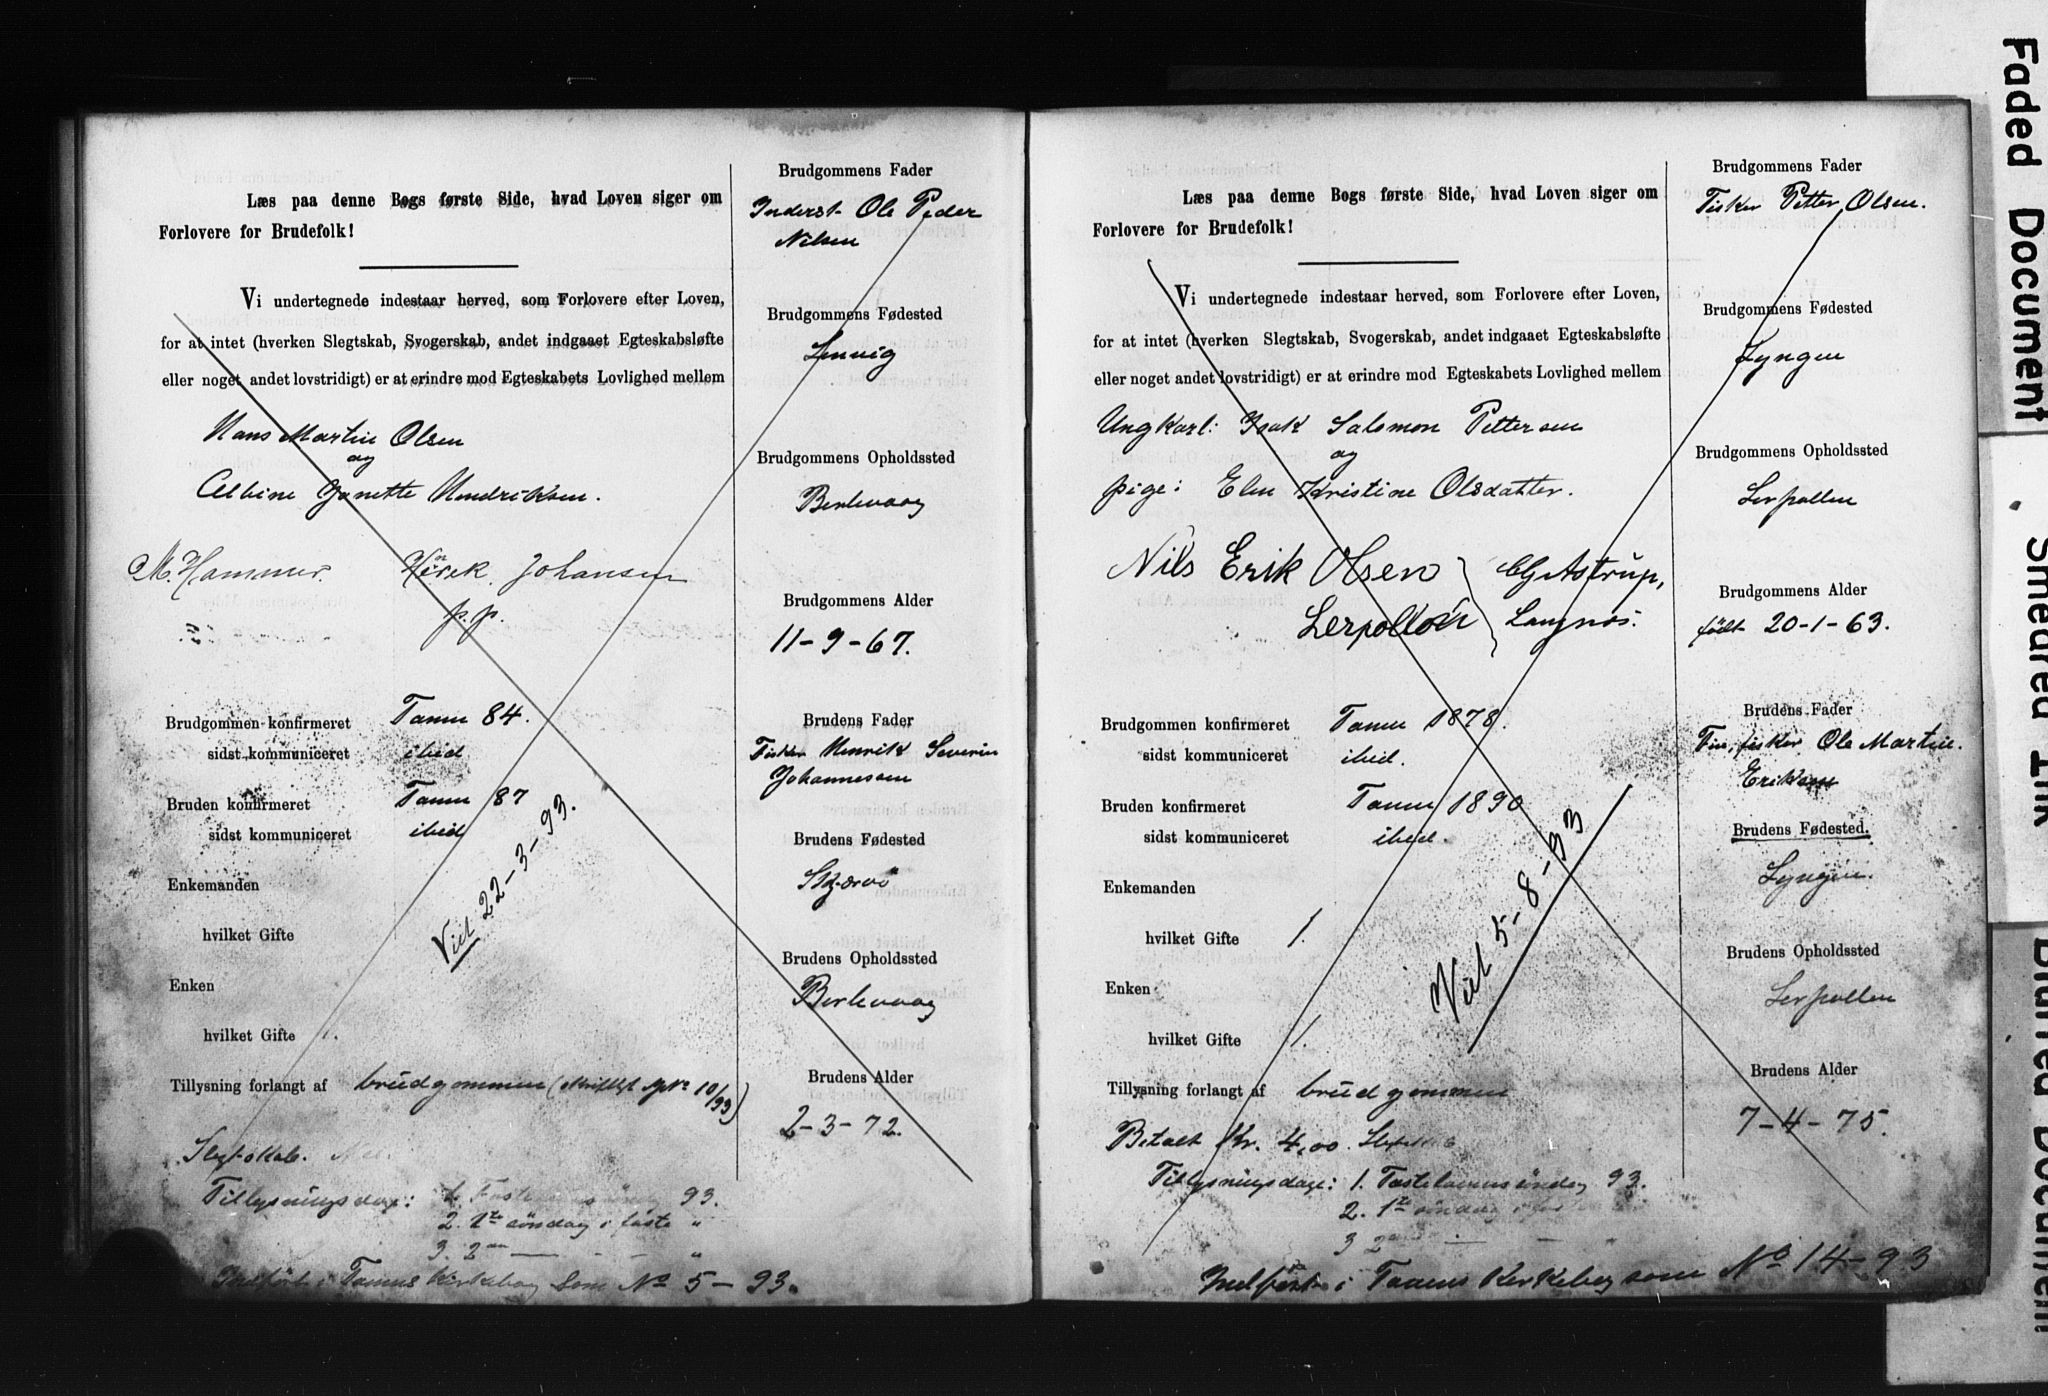 Læs paa denne Bogs første Side, hvad Loven siger om
Forlovere for Brudefolk!
Vi undertegnede indestaar herved, som Forlovere efter Loven,
for at intet (hverken Slegtskab, Svogerskab, andet indgaaet Egteskabsløfte
eller noget andet lovstridigt) er at erindre mod Egteskabets Lovlighed mellem
Hans Martin Olsen
og
Albine Janette Hendriksen.
M. Hammer. Johansen
p.p.
Brudgommen konfirmeret Tanen 84.
sidst kommuniceret ibid
Bruden konfirmeret Tanen 87
sidst kommuniceret ibid
Viet 22-3-93.
Enkemanden
hvilket Gifte
Enken
hvilket Gifte 1.
Tillysning forlangt af brudgommen (skriftligt No 10/93)
Slegtskab.
Tillysningsdage: 1. Fastelavnssöndag 93.
2. 1ste söndag i faste "
3. 2den — — "
Indført i Tanens Kirkebog som No 5-93.
Brudgommens Fader
Inderst Ole Peder
Nilsen
Brudgommens Fødested
Lenvig
Brudgommens Opholdssted
Berlevaag
Brudgommens Alder
11-9-67.
Brudens Fader
Fisker Henrik Severin
Johannesen
Brudens Fødested
Skjærvö
Brudens Opholdssted
Berlevaag
Brudens Alder
2-3-72.
Læs paa denne Bogs første Side, hvad Loven siger om
Forlovere for Brudefolk!
Vi undertegnede indestaar herved, som Forlovere efter Loven,
for at intet (hverken Slegtskab, Svogerskab, andet indgaaet Egteskabsløfte
eller noget andet lovstridigt) er at erindre mod Egteskabets Lovlighed mellem
Ungkarl: Isak Salomon Pettersen
og
pige: Elen Kristine Olsdatter.
Nils Erik Olsen Astrup,
Lerpollen Langnes.
Brudgommen konfirmeret Tanen 1878.
sidst kommuniceret ibid.
Bruden konfirmeret Tanen 1890
sidst kommuniceret ibid.
Viet 5-8-93
Enkemanden
hvilket Gifte 1.
Enken
hvilket Gifte 1.
Tillysning forlangt af brudgommen
Betalt Kr. 4,00.
Tillysningsdage: 1. Fastelavnssöndag 93.
2. 1ste söndag i
3 2den — —
Indført i Tanens Kirkebog som No 14-93
Brudgommens Fader
Fisker Petter Olsen.
Brudgommens Fødested
Lyngen
Brudgommens Opholdssted
Lerpollen
Brudgommens Alder
født 20-1-63.
Brudens Fader
Fin, fisker Ole Martin
Eriksen
Brudens Fødested.
Lyngen.
Brudens Opholdssted
Lerpollen
Brudens Alder
7-4-75.
Faded Document
Smeared Ink
Blurred Document